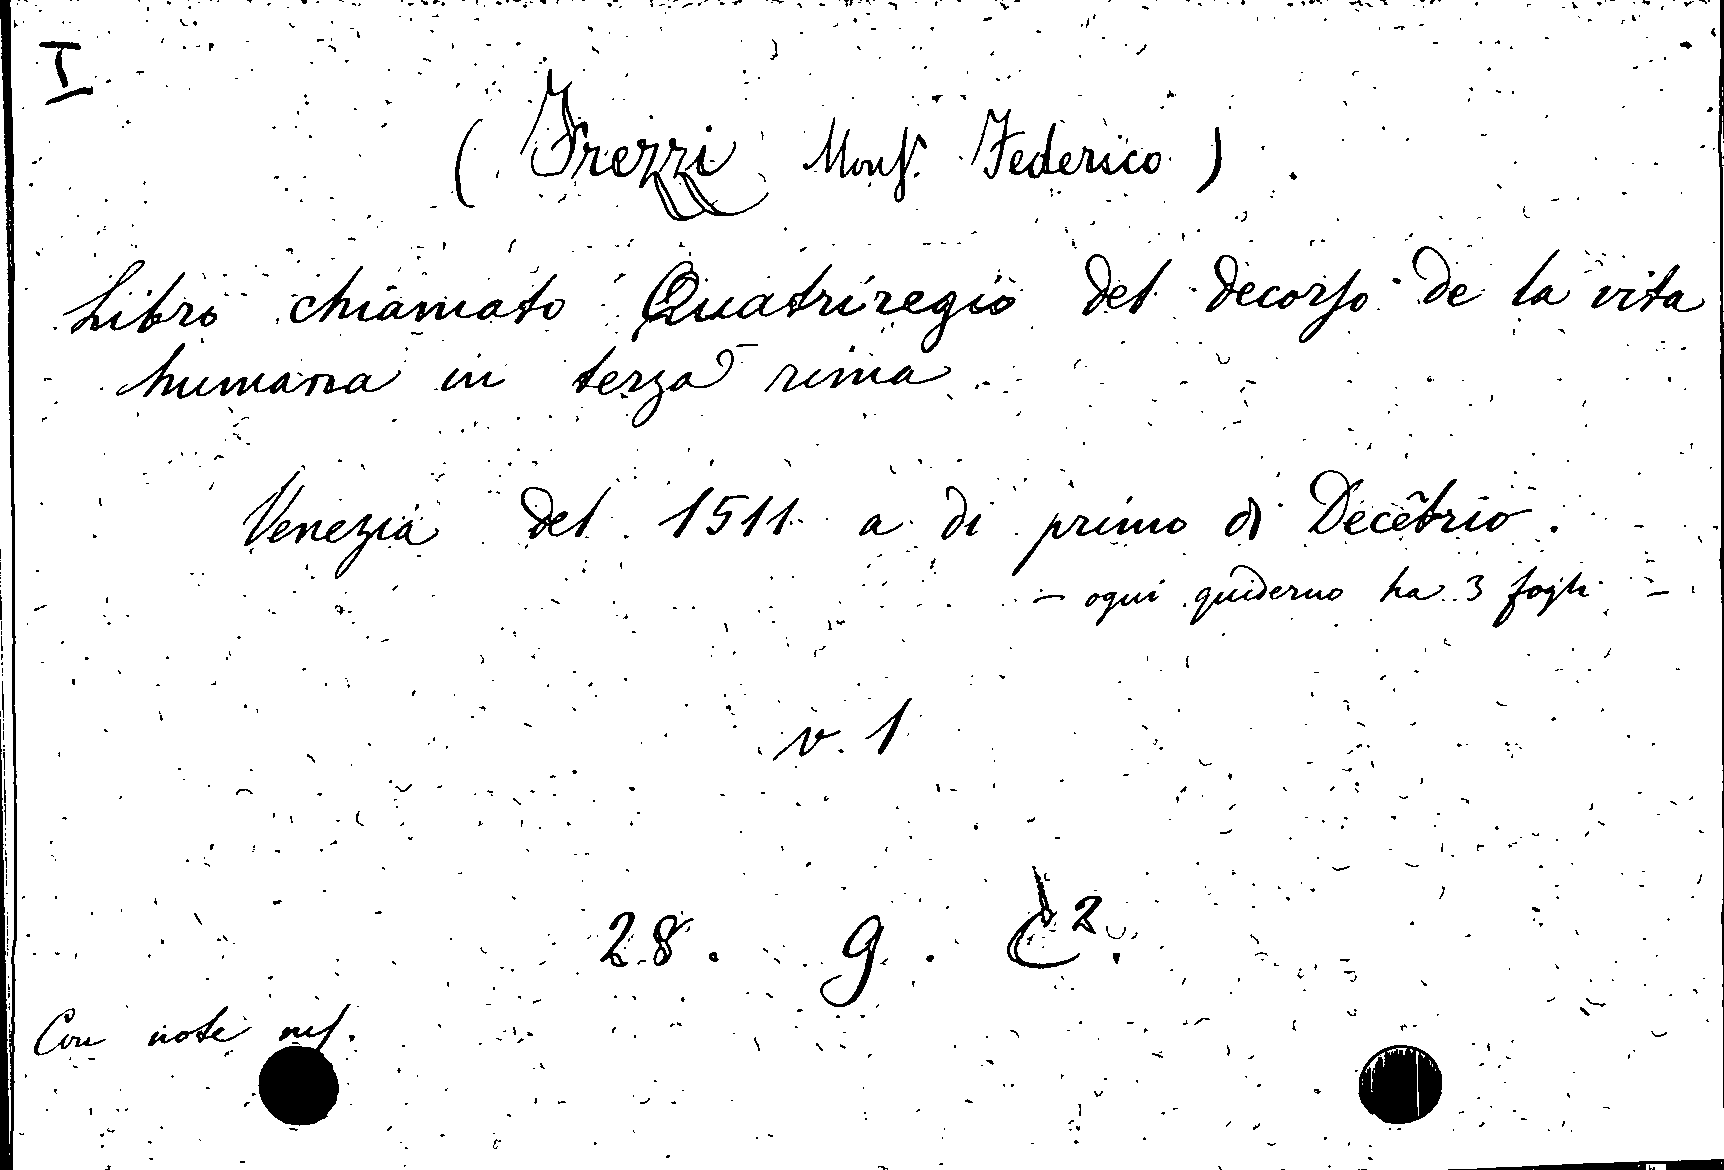 I
( Frezzi Mons. Federico ) .
Libro chiamato Quatriregio del decorso de la vita
humana in terza rima
Venezia del 1511 a di primo di Decẽbrio .
– ogni quiderno ha 3 fogli –
v. 1
28 . 9 . C².
Con note ms.